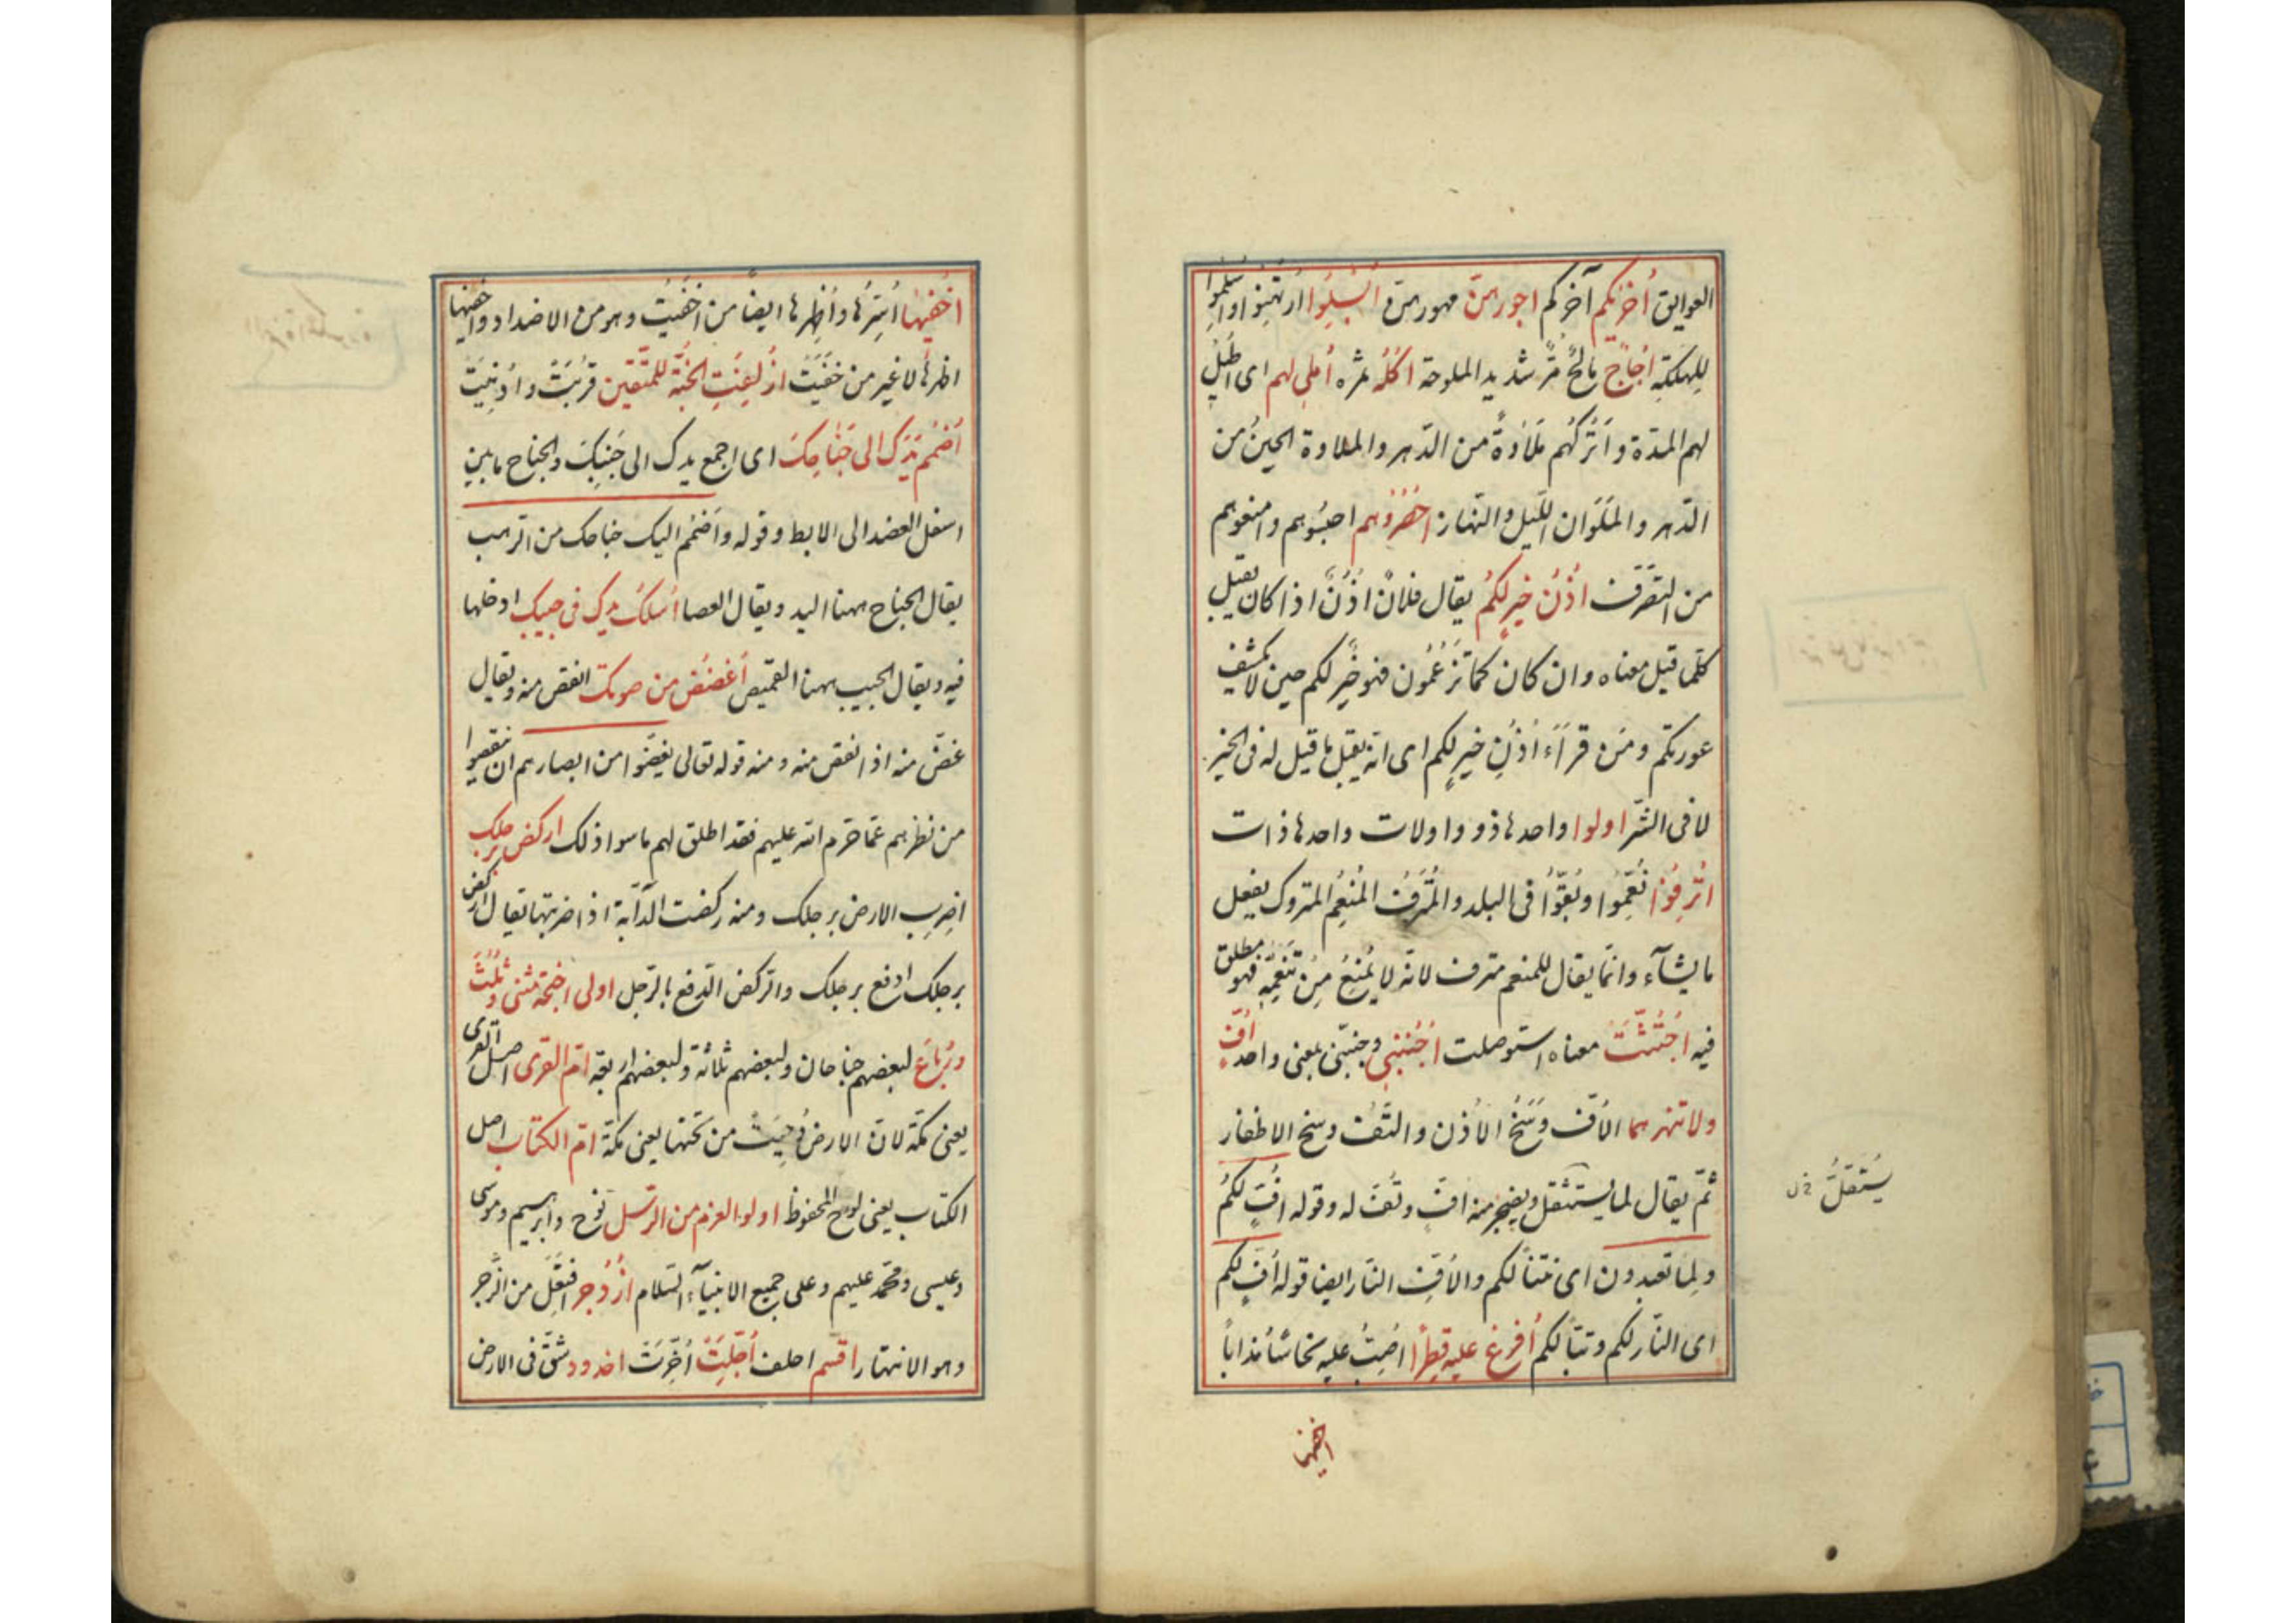 العوایق أُخرٰیکم آخرکم اجورهنّ مهورهنّ اُبْسِلُوا ارتُهِنُوا واُسْلِمُوا
لِلهَلَکَةِ اُجَاجٌ مَالِحٌ مُرٌّ شدید الملوحة اُکُلُهُ ثمره اُملی لهم ای اُطیلُ
لهم المدّة واَترُکُهُم مَلَاوةً من الدّهر والملاوة الحینُ من
الدّهر والمَلَوَان اللّیل والنّهار اُحْصُرُوهم احبِسُوهم وامنعوهم
من التّصَرّف اُذُنُ خیرٍ لکُم یقال فلانٌ اُذُنٌ اذا کان یقبل
کلّما قیل معناه وان کان کما تَزعُمُون فهو خیرٌ لکم حین لا یکشف
عورتکم ومَن قرَأَ اُذُنٌ خیرٌ لکم ای انّه یقبل ما قیل له فی الخیر
لا فی الشّر اولوا واحدها ذو واولات واحدها ذات
اُتْرِفُوا نُعِّمُوا وبُقُّوا فی البلد والمُتْرَفُ المُنعَمُ المتروک یفعل
ما یشآء وانّما یقال للمنعم مترف لانّه لا یُمنَعُ مِن تَنَعُّمِهِ فهو مطلق
فیه اُجتُثَّتْ معناه استوصلت اُجْنُبْنِی وجنّبنی بمعنی واحد اُفٍّ
ولا تنهرهما الاُفّ وَسَخُ الاُذُن والتُّفّ وسخ الاظفار
ثمّ یقال لما یستثقل ویضجر منه اُفٍّ وتُفٍّ له وقوله اُفٍّ لکُم
ولِما تعبدون ای نتناً لکم والاُفّ النّار ایضا قوله اُفٍّ لکم
ای النّار لکم وتبّاً لکم اُفرغ علیه قِطراً اصُبُّ علیه نحاسًا مُذاباً
اخفیها
یُسْتَثقَلُ خ ل
اُخفیها اُستِرُها واُظهِرها ایضاً من اَخفَیتُ وهو من الاضداد واَخفیها
اظهرها لا غیر من خَفَیتُ اُزْلِفَتِ الجَنَّةُ لِلمُتَّقین قُرِّبَتْ واُدنِیَتْ
اُضْمُم یَدَکَ الی جَنَاحِکَ ای اجمع یدک الی جَنبِکَ والجناح ما بین
اسفل العضد الی الابط وقوله واضْمُم الیک جناحک من الرّهب
یقال الجناح ههنا الید ویقال العصا اُسلُکْ یدک فی جیبک ادخلها
فیه ویقال الجیب ههنا القمیص اُغضُضْ من صوتک انقص منه ویقال
غضّ منه اذا نقص منه ومنه قوله تعالی یغضّوا من ابصارهم ان ینقصوا
من نظرهم عمّا حرّم الله علیهم فقد اطلق لهم ما سوا ذلک ارکض برجلک
اضرِبِ الارض برجلک ومنه رکضت الدّآبّة اذا ضربتها یقال ارکض
برجلک ادفع برجلک والرّکض الدّفع بالرّجل اولی اجنحة مثنی وثُلٰثَ
ورُبَاعَ لبعضهم جناحان ولبعضهم ثلاثة ولبعضهم اربعة امّ القری اصل القری
یعنی مکّة لانّ الارض دُحِیَتْ من تحتها یعنی مکّة امّ الکتاب اصل
الکتاب یعنی لوح المحفوظ اولوا العزم من الرّسل نوح وابرهیم وموسی
وعیسی ومحمّد علیهم وعلی جمیع الانبیآء السّلام اُزْدُجِر افتُعِلَ من الزّجر
وهو الانتهار اُقسِم احلف اُجّلَتْ اُخِّرَتْ اخدود شقّ فی الارض